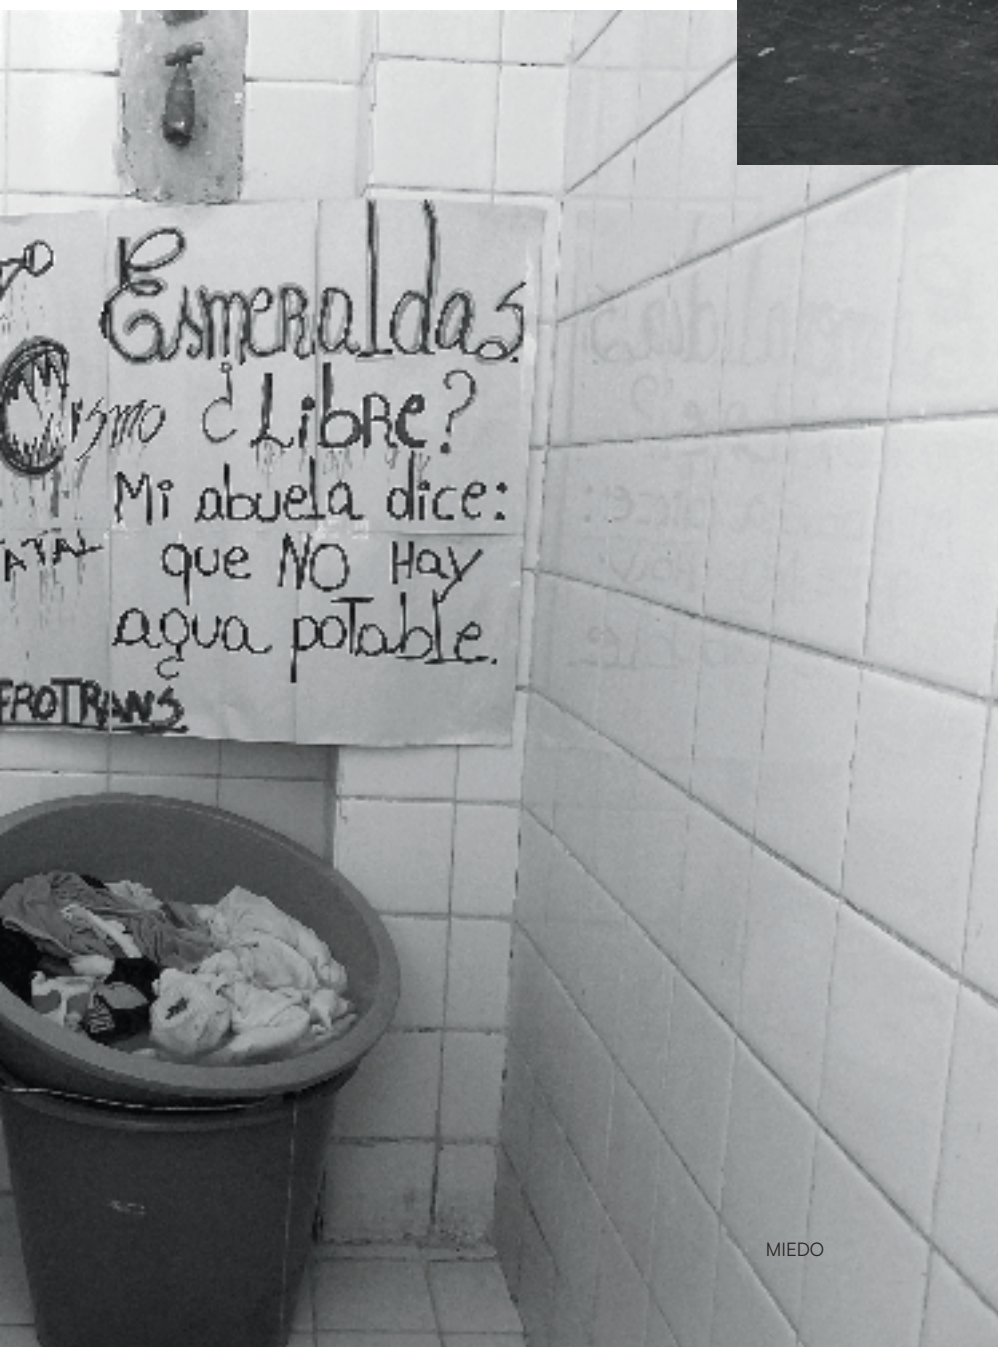 Esmeraldas
¿Libre?
Cismo
Mi abuela dice:
que NO Hay
agua poTable.
TATAL
FROTRANS
MIEDO